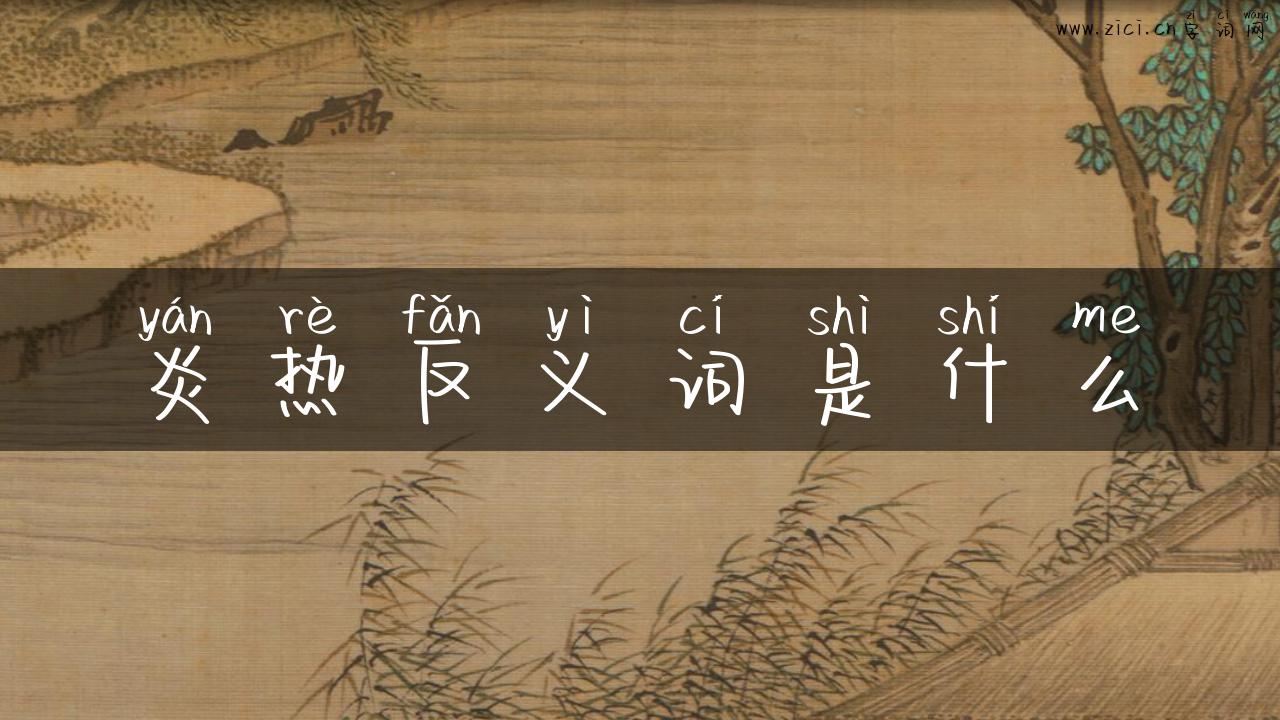 zì cí wǎng
www.zici.cn字词网
yán rè fǎn yì cí shì shí me
炎热反义词是什么